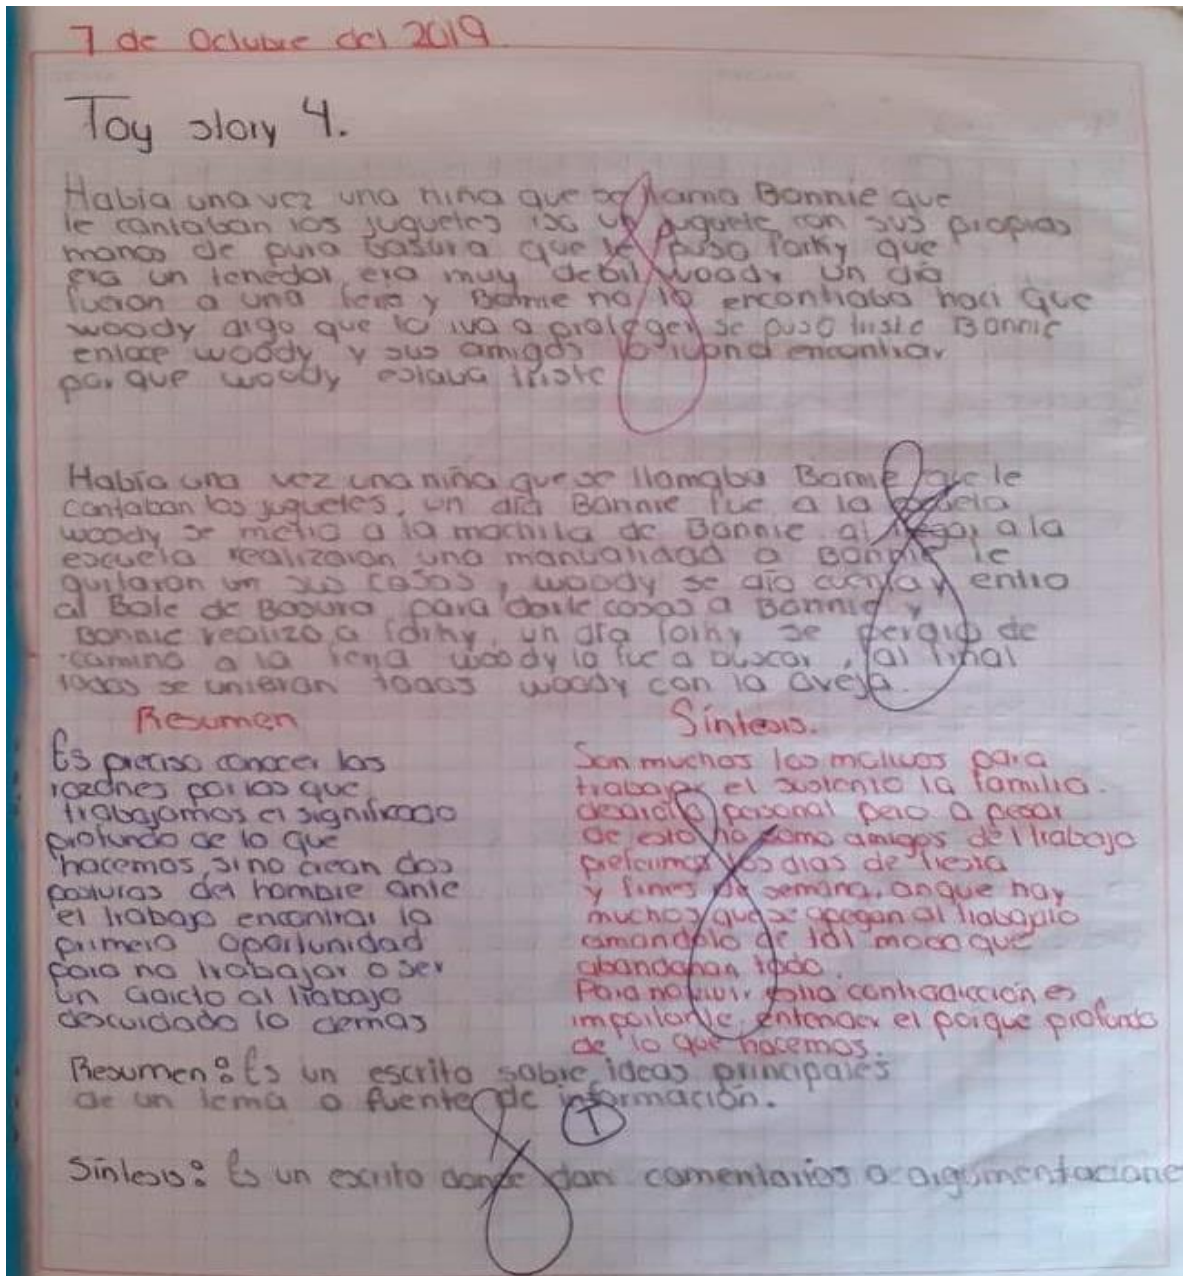 7 de Octubre del 2019.
Toy story 4.
Había una vez una niña que se llama Bonnie que
le cantaban los juguetes iso un juguete con sus propias
manos de pura basura que le puso forky que
era un tenedor, era muy debil woody un día
fueron a una feria y Bonnie no lo encontraba haci que
woody digo que lo iva a proteger se puso triste Bonnie
entoce woody y sus amigos lo ivana encontrar
por que woody estava triste
Había una vez una niña que se llamaba Bonnie que le
cantaban los juguetes, un día Bonnie fue a la escuela
woody se metio a la mochila de Bonnie al llegar a la
escuela realizaron una manualidad a Bonnie le
quitaron un sus cosas, woody se dio cuenta y entro
al Bote de Basura para darle cosas a Bonnie y
Bonnie realizó a forky, un día forky se perdio de
camino a la feria woody lo fue a buscar, al final
todos se unieran todos woody con la oveja.
Resumen
Es preciso conocer las
razones por las que
trabajamos el significado
profundo de lo que
hacemos, sino crean dos
posturas del hombre ante
el trabajo encontrar la
primera oportunidad
para no trabajar o ser
un adicto al trabajo
descuidado lo demas
Síntesis.
Son muchos los motivos para
trabajar el sustento la familia.
desarollo personal pero a pesar
de esto no somo amigos del trabajo
preferimos los dias de fiesta
y fines de semana, anque hay
muchos que se apegan al trabajo
amandolo de tal modo que
abandonan todo.
Para no vivir esta contradicción es
importante, entender el porque profundo
de lo que hacemos.
Resumen: Es un escrito sobre ideas principales
de un tema o fuente de información.
T
Síntesis: Es un escrito donde dan comentarios o argumentacione